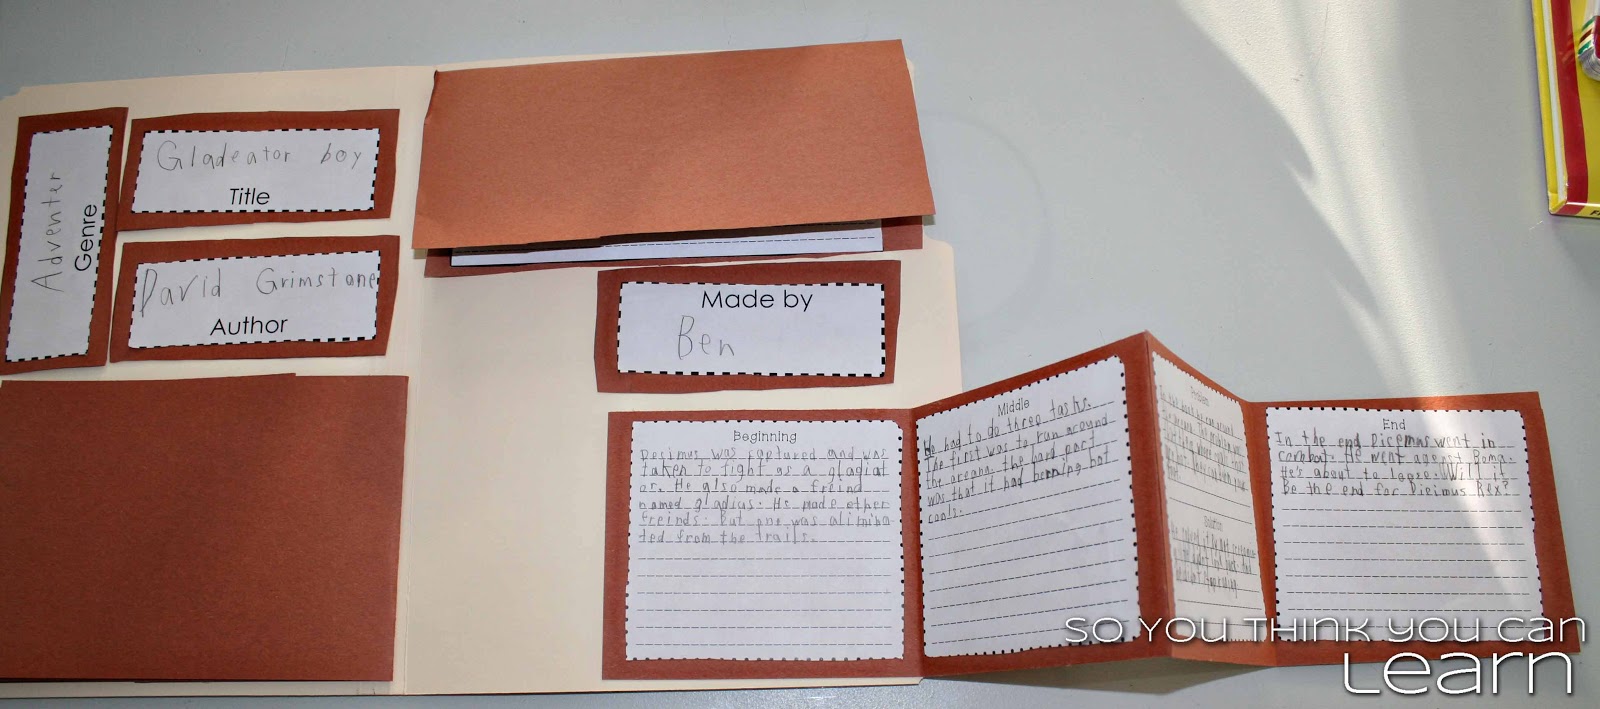 Adventer
Genre
Gladeator boy
Title
David Grimstone
Author
Made by
Ben
Beginning
Desimus was captured and was
taken to fight as a gladiat
or. He also made a freind
named gladius. He made other
freinds. But one was alimina
ted from the trails.
Middle
He had to do three tasks.
The first was to run around
the areana. the hard part
was that it had berning hot
cools.
Problem
Solution
End
In the end Dicemus went in
combat. He went against Boma.
He's about to loose. Will it
Be the end for Dicimus Rex?
SO YOU THINK YOU CAN
Learn